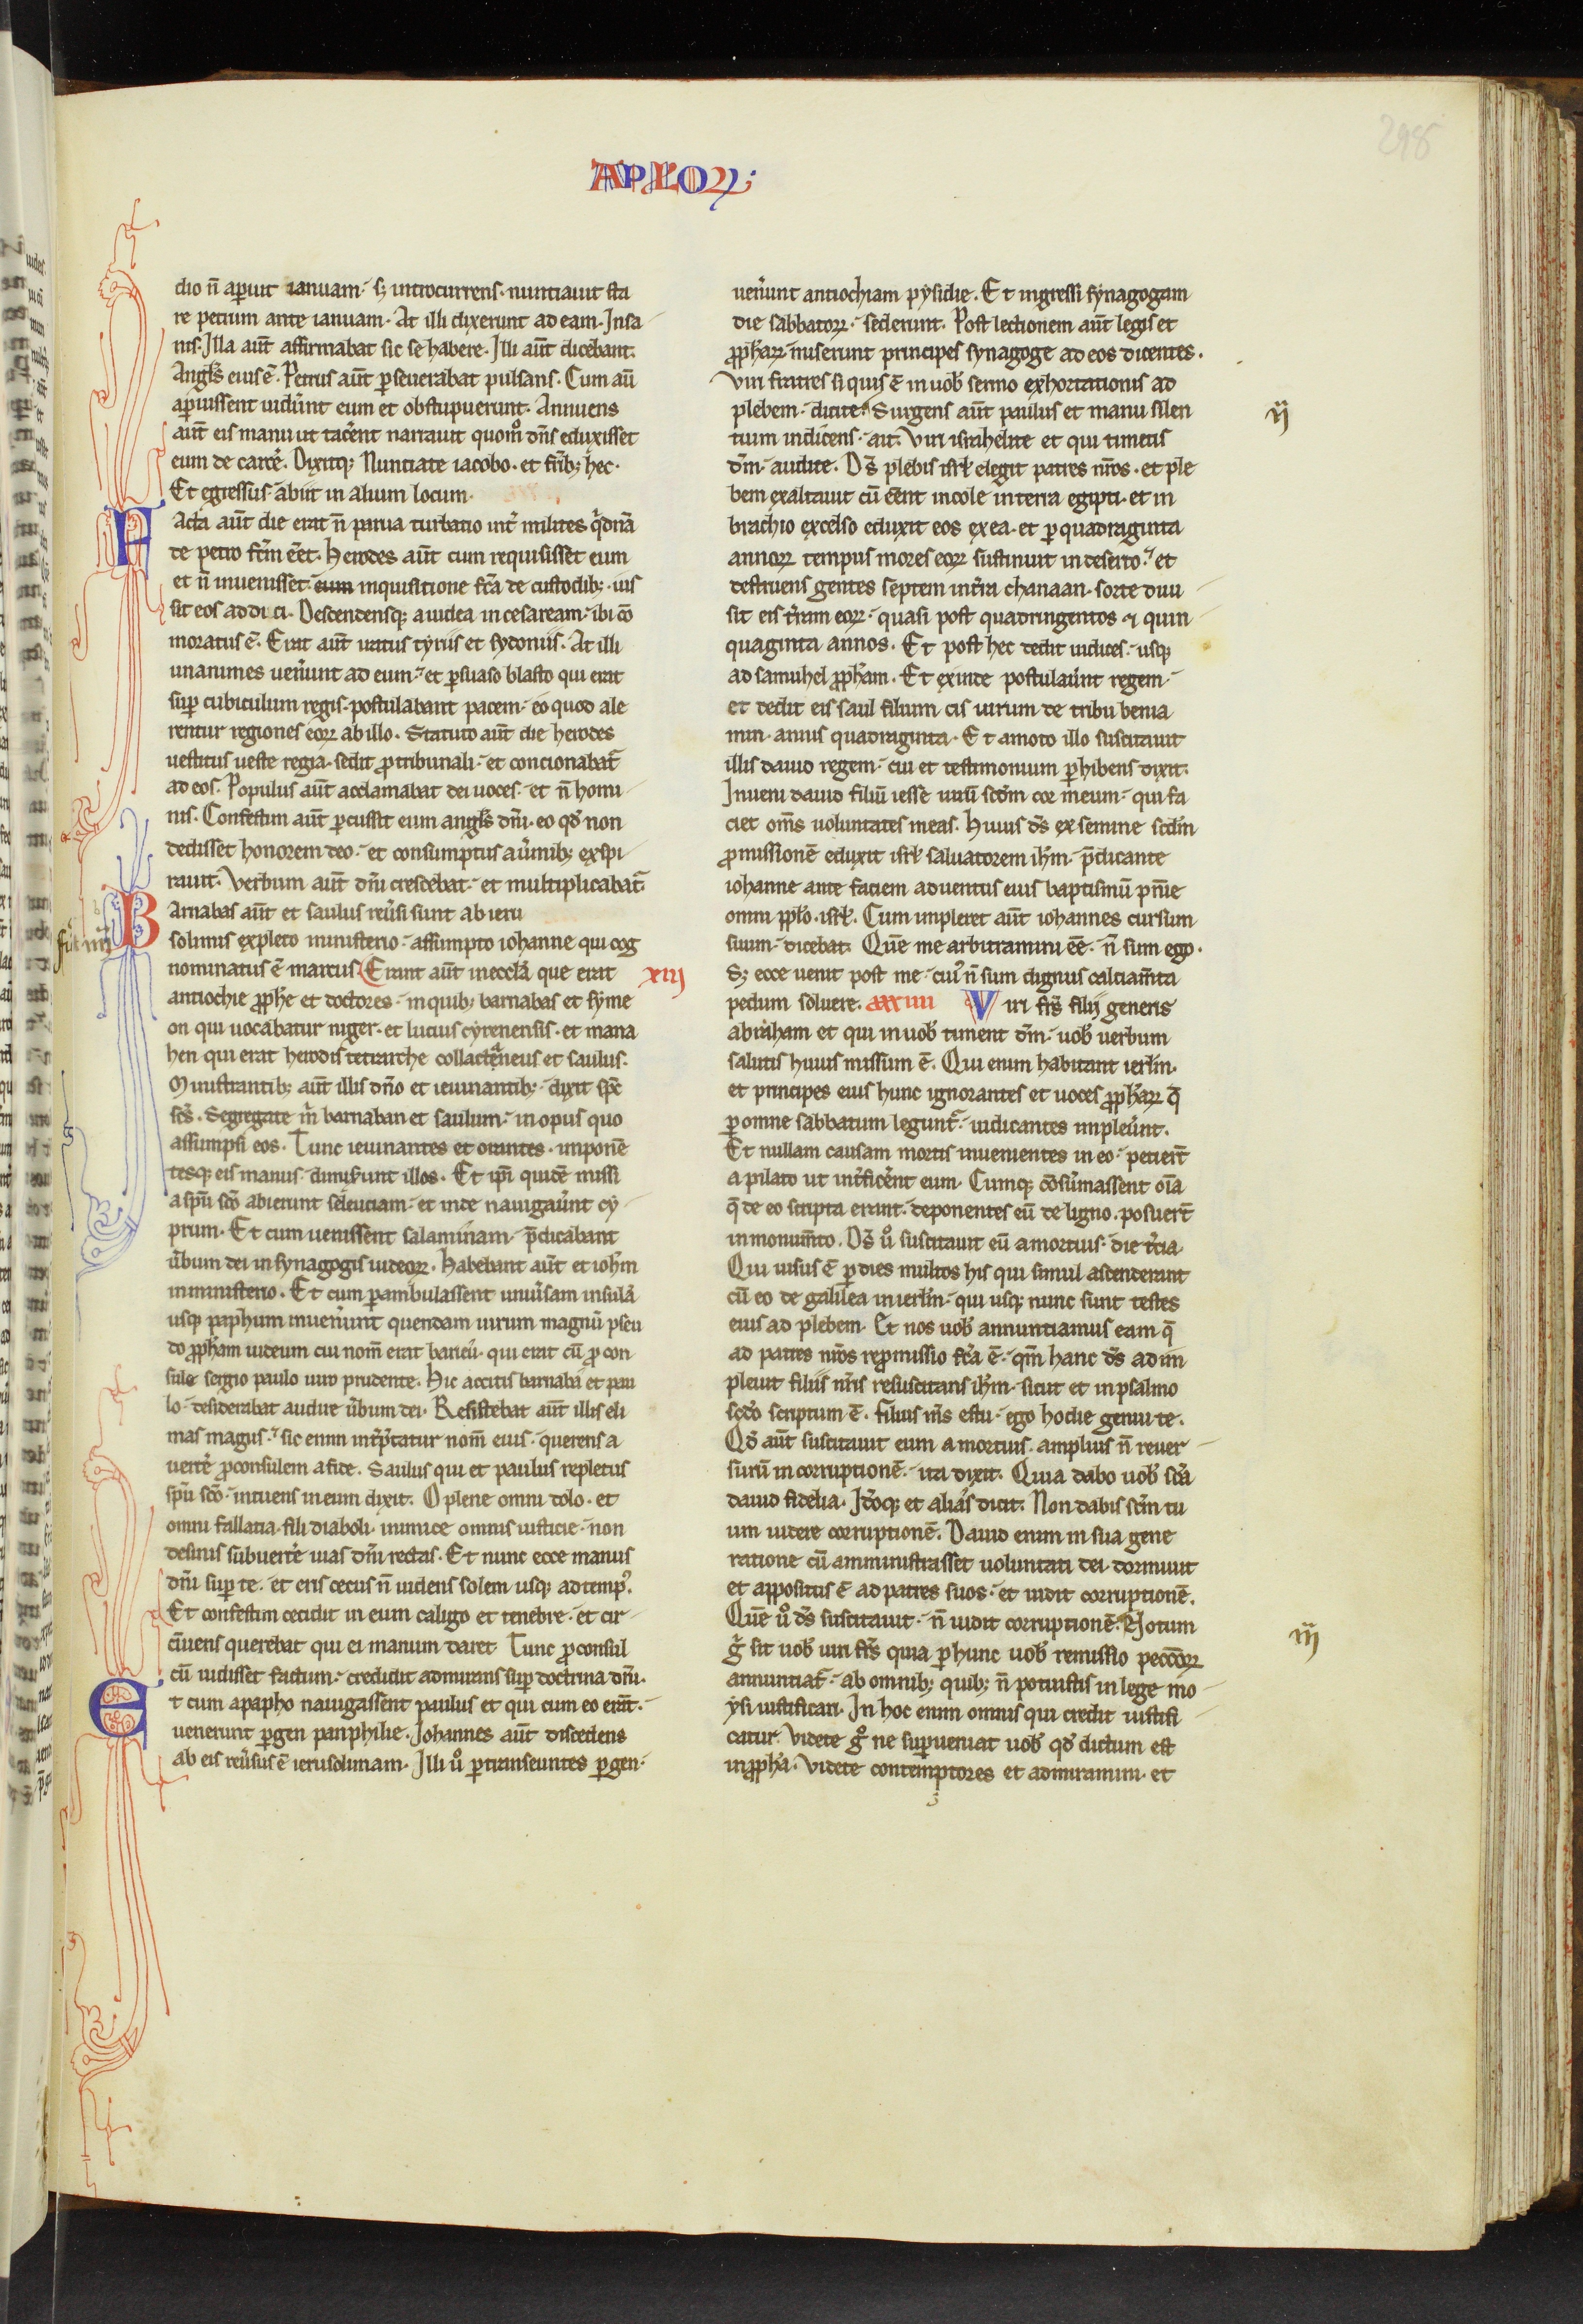 298
APLOꝝ;
dio n̄ aperuit ianuam· sꝫ introcurrens· nuntiauit sta
re petrum ante ianuam· At illi dixerunt ad eam· Insa
nis· Illa aut̄ affirmabat sic se habere· Illi aut̄ dicebant·
Angl's eius ē· Petrus aut̄ perseuerabat pulsans· Cum aū
aperuissent uider̄unt eum et obstupuerunt· Annuens
aut̄ eis manu ut tacer̄ent narrauit quom̊ dn̄s eduxisset
eum de carcer̄e· Dixitqꝫ Nuntiate iacobo· et fr̄ibꝫ hec·
Et egressus· abiit in alium locum·
Facta aut̄ die erat n̄ parua turbatio int̄ milites q̄dnā
de petro fc̄m eet̄· Herodes aut̄ cum requisisset eum
et n̄ inuenisset· eum inquisitione fc̄a de custodibꝫ· ius
sit eos ad duci· Descendensqꝫ a iudea in cesaream· ibi cō
moratus ē· Erat aut̄ iratus tyriis et sydoniis· At illi
unanimes uener̄unt ad eum· et persuaso blasto qui erat
super cubiculum regis· postulabant pacem· eo quod ale
rentur regiones eoꝝ ab illo· Statuto aut̄ die herodes
uestitus ueste regia· sedit pro tribunali· et concionabat̄
ad eos· Populus aut̄ acclamabat dei uoces· et n̄ homi
nis· Confestim aut̄ percussit eum angl's dn̄i· eo qd̄ non
dedisset honorem deo· et consumptus a uer̄mibꝫ exspi
rauit· Verbum aut̄ dn̄i crescebat· et multiplicabat̄
Barnabas aut̄ et saulus reuer̄si sunt ab ieru
solimis expleto ministerio· assumpto iohanne qui cog
nominatus ē marcus Erant aut̄ in eccl̄a que erat xiij
antiochie prophe et doctores· in quibꝫ barnabas et syme
on qui uocabatur niger· et lucius cyrenensis· et mana
hen qui erat herodis tetrarche collactaneus et saulus·
Ministrantibꝫ aut̄ illis dn̄o et ieiunantibꝫ· dixit spc̄
sc̄s· Segregate m̄ barnaban et saulum· in opus quo
assumpsi eos· Tunc ieiunantes et orantes· imponē
tesqꝫ eis manus· dimiser̄unt illos· Et ipi quidē missi
a spū sc̄o abierunt seleuciam· et inde nauigauer̄unt cy
prum· Et cum uenissent salaminam· p̄dicabant
uer̄bum dei in synagogis iudeoꝝ· Habebant aut̄ et ioh̄m
in ministerio· Et cum perambulassent uniuer̄sam insulā
usqꝫ paphum inuener̄unt quendam uirum magnū pseu
do propham iudeum cui nom̄ erat barieu· qui erat cū pro con
sule sergio paulo uiro prudente· Hic accitis barnaba et pau
lo· desiderabat audire uer̄bum dei· Resistebat aut̄ illis eli
mas magus· sic enim int̄ptatur nom̄ eius· querens a
uertere proconsulem a fide· Saulus qui et paulus repletus
spū sc̄o· intuens in eum dixit· O plene omni dolo· et
omni fallatia· fili diaboli· inimice omnis iusticie· non
desinis subuertere uias dn̄i rectas· Et nunc ecce manus
dn̄i super te· et eris cecus n̄ uidens solem usqꝫ ad temp̃·
Et confestim cecidit in eum caligo et tenebre· et cir
cūiens querebat qui ei manum daret Tunc proconsul
cū uidisset factum· credidit admirans super doctrina dn̄i·
Et cum a papho nauigassent paulus et qui cum eo erāt·
uenerunt pergen panphilie· Iohannes aut̄ discedens
ab eis reuer̄sus ē ierusolimam· Illi uº pertranseuntes pergen·
uener̄unt antiochiam pysidie· Et ingressi synagogam
die sabbatoꝝ· sederunt· Post lectionem aut̄ legis et
prophaꝝ· miserunt principes synagoge ad eos dicentes·
Viri fratres si quis ē in uob̄ sermo exhortationis ad
plebem· dicite· Surgens aut̄ paulus et manu silen ij
tium indicens· ait· Viri israhelite et qui timetis
dm̄· audite· Ds̄ plebis isrl̄ elegit patres nr̄os· et ple
bem exaltauit cū eent incole in terra egipti· et in
brachio excelso eduxit eos ex ea· et per quadraginta
annoꝝ tempus mores eoꝝ sustinuit in deserto· et
destruens gentes septem in tr̄a chanaan· sorte diui
sit eis tr̄am eoꝝ· quasi post quadringentos ⁊ quin
quaginta annos· Et post hec dedit iudices· usqꝫ
ad samuhel propham· Et exinde postulauer̄unt regem·
et dedit eis saul filium cis uirum de tribu benia
min· annis quadraginta· Et amoto illo suscitauit
illis dauid regem· cui et testimonium perhibens dixit·
Inueni dauid filiū iesse uirū scdm̄ cor meum· qui fa
ciet oms̄ uoluntates meas· Huius ds̄ ex semine scdm̄
promissionē eduxit isrl̄ saluatorem ih̄m· p̄dicante
iohanne ante faciem aduentus eius baptismū pn̄ie
omni pplo· isrl̄· Cum impleret aut̄ iohannes cursum
suum· dicebat· Quē me arbitramini eē· n̄ sum ego·
Sꝫ ecce uenit post me· cui᷒ n̄ sum dignus calciam̄ta
pedum soluere· xxxiiii Viri frs̄ filij generis
abraham et qui in uob̄ timent dm̄· uob̄ uerbum
salutis huius missum ē· Qui enim habitant ierl̄m·
et principes eius hunc ignorantes et uoces prophaꝝ q̄
per omne sabbatum legunt̄· iudicantes impleuer̄unt·
Et nullam causam mortis inuenientes in eo· petier̄t
a pilato ut int̄ficer̄ent eum· Cumqꝫ cōsūmassent oīa
q̄ de eo scripta erant· deponentes eū de ligno· posuer̄t
in monum̄to· Ds̄ uº suscitauit eū a mortuis· die tr̄cia·
Qui uisus ē per dies multos his qui simul ascenderant
cū eo de galilea in ierl̄m· qui usqꝫ nunc sunt testes
eius ad plebem· Et nos uob̄ annuntiamus eam q̄
ad patres nr̄os repromissio fc̄a ē· qm̄ hanc ds̄ adim
pleuit filiis nr̄is resuscitans ih̄m· sicut et in psalmo
scdo scriptum ē· Filius ms̄ es tu· ego hodie genui te·
Qd̄ aut̄ suscitauit eum a mortuis· amplius n̄ reuer
surū in corruptionē· ita dixit· Quia dabo uob̄ sc̄a
dauid fidelia· Id̄oqꝫ et alias dicit· Non dabis scm̄ tu
um uidere corruptionē· Dauid enim in sua gene
ratione cū amministrasset uoluntati dei· dormiuit
et appositus ē ad patres suos· et uidit corruptionē·
Quē uº ds̄ suscitauit· n̄ uidit corruptionē· Notum iij
gͦ sit uob̄ uiri frs̄ quia per hunc uob̄ remissio peccōꝝ
annuntiat̄· ab omnibꝫ quibꝫ n̄ potuistis in lege mo
ysi iustificari· In hoc enim omnis qui credit iustifi
catur· Videte gͦ ne superueniat uob̄ qd̄ dictum est
in propha· Videte contemptores et admiramini· et